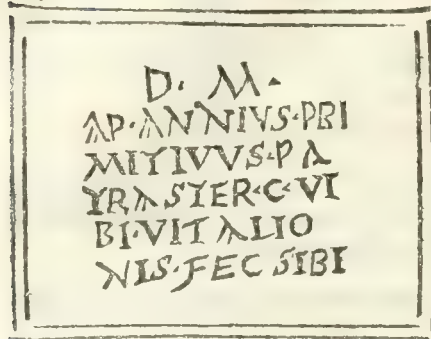 D · M ·
AP · ANNIVS · PRI
MITIVVS · PA
TRASTER · C · VI
BI · VITALIO
NIS · FEC SIBI